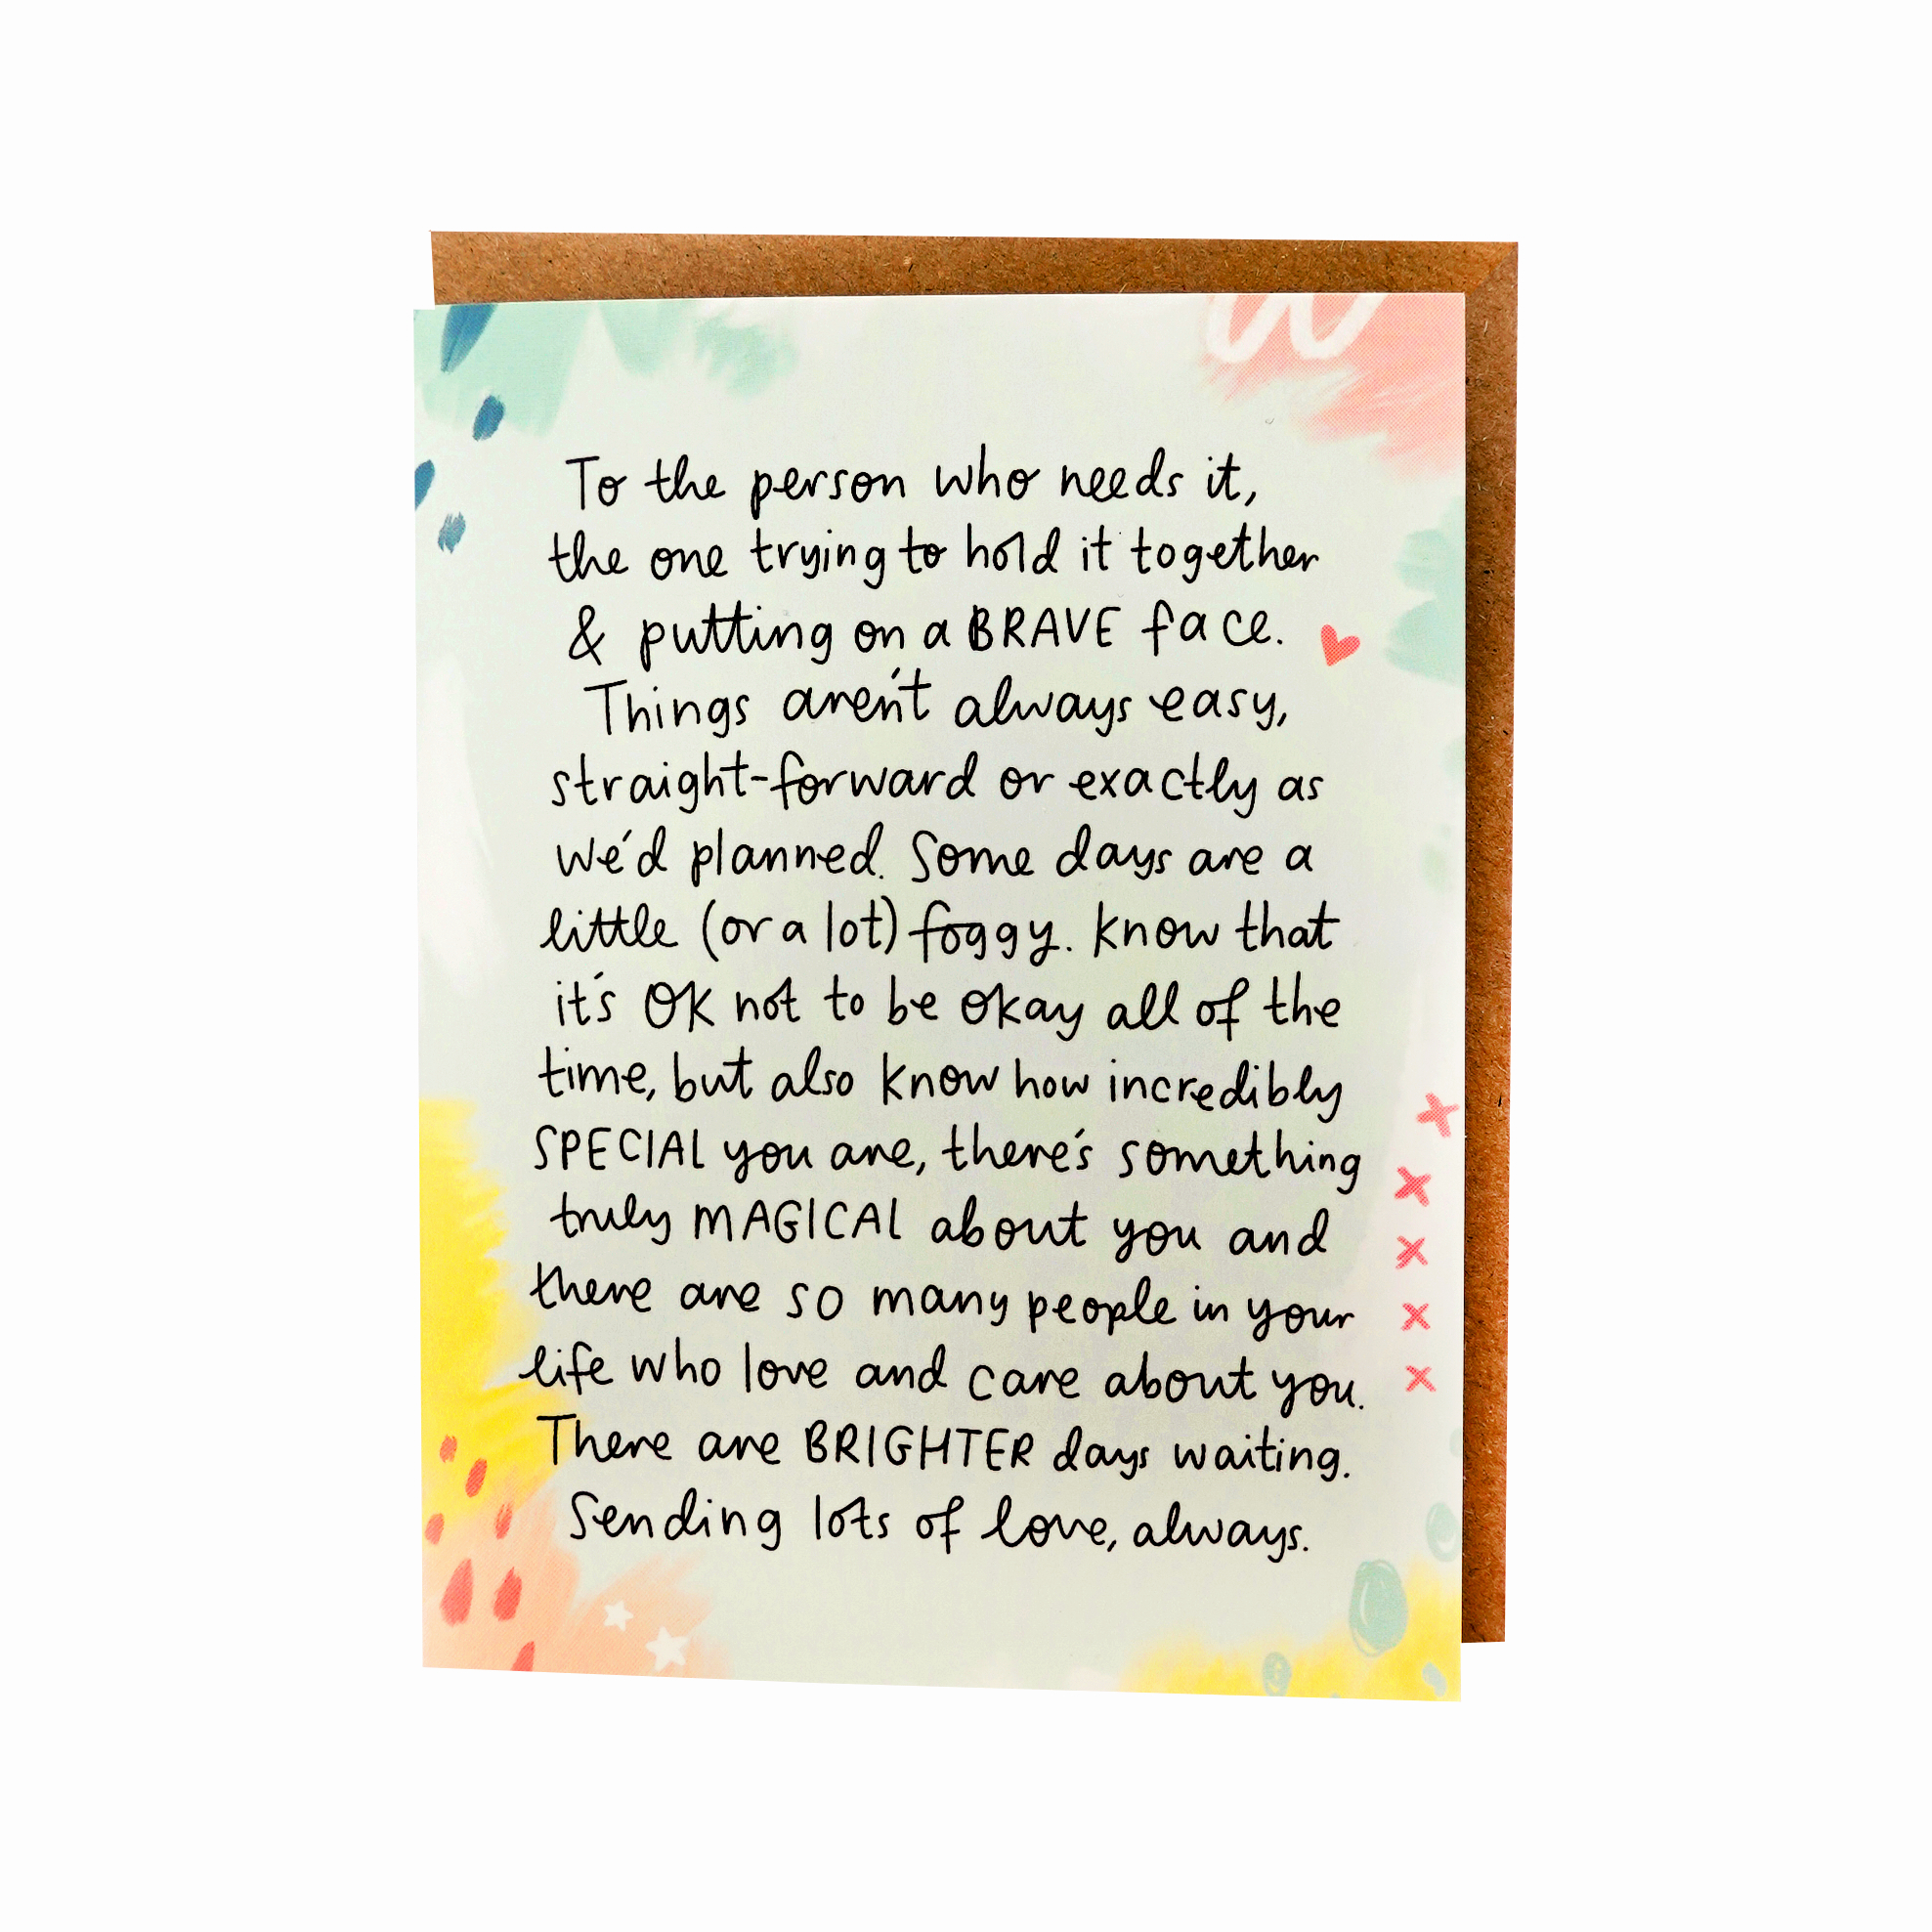 To the person who needs it,
the one trying to hold it together
& putting on a BRAVE face.
Things aren't always easy,
straight-forward or exactly as
we'd planned. Some days are a
little (or a lot) foggy. Know that
it's OK not to be okay all of the
time, but also know how incredibly
SPECIAL you are, there's something
truly MAGICAL about you and
there are so many people in your
life who love and care about you.
There are BRIGHTER days waiting.
Sending lots of love, always.
x
x
x
x
x